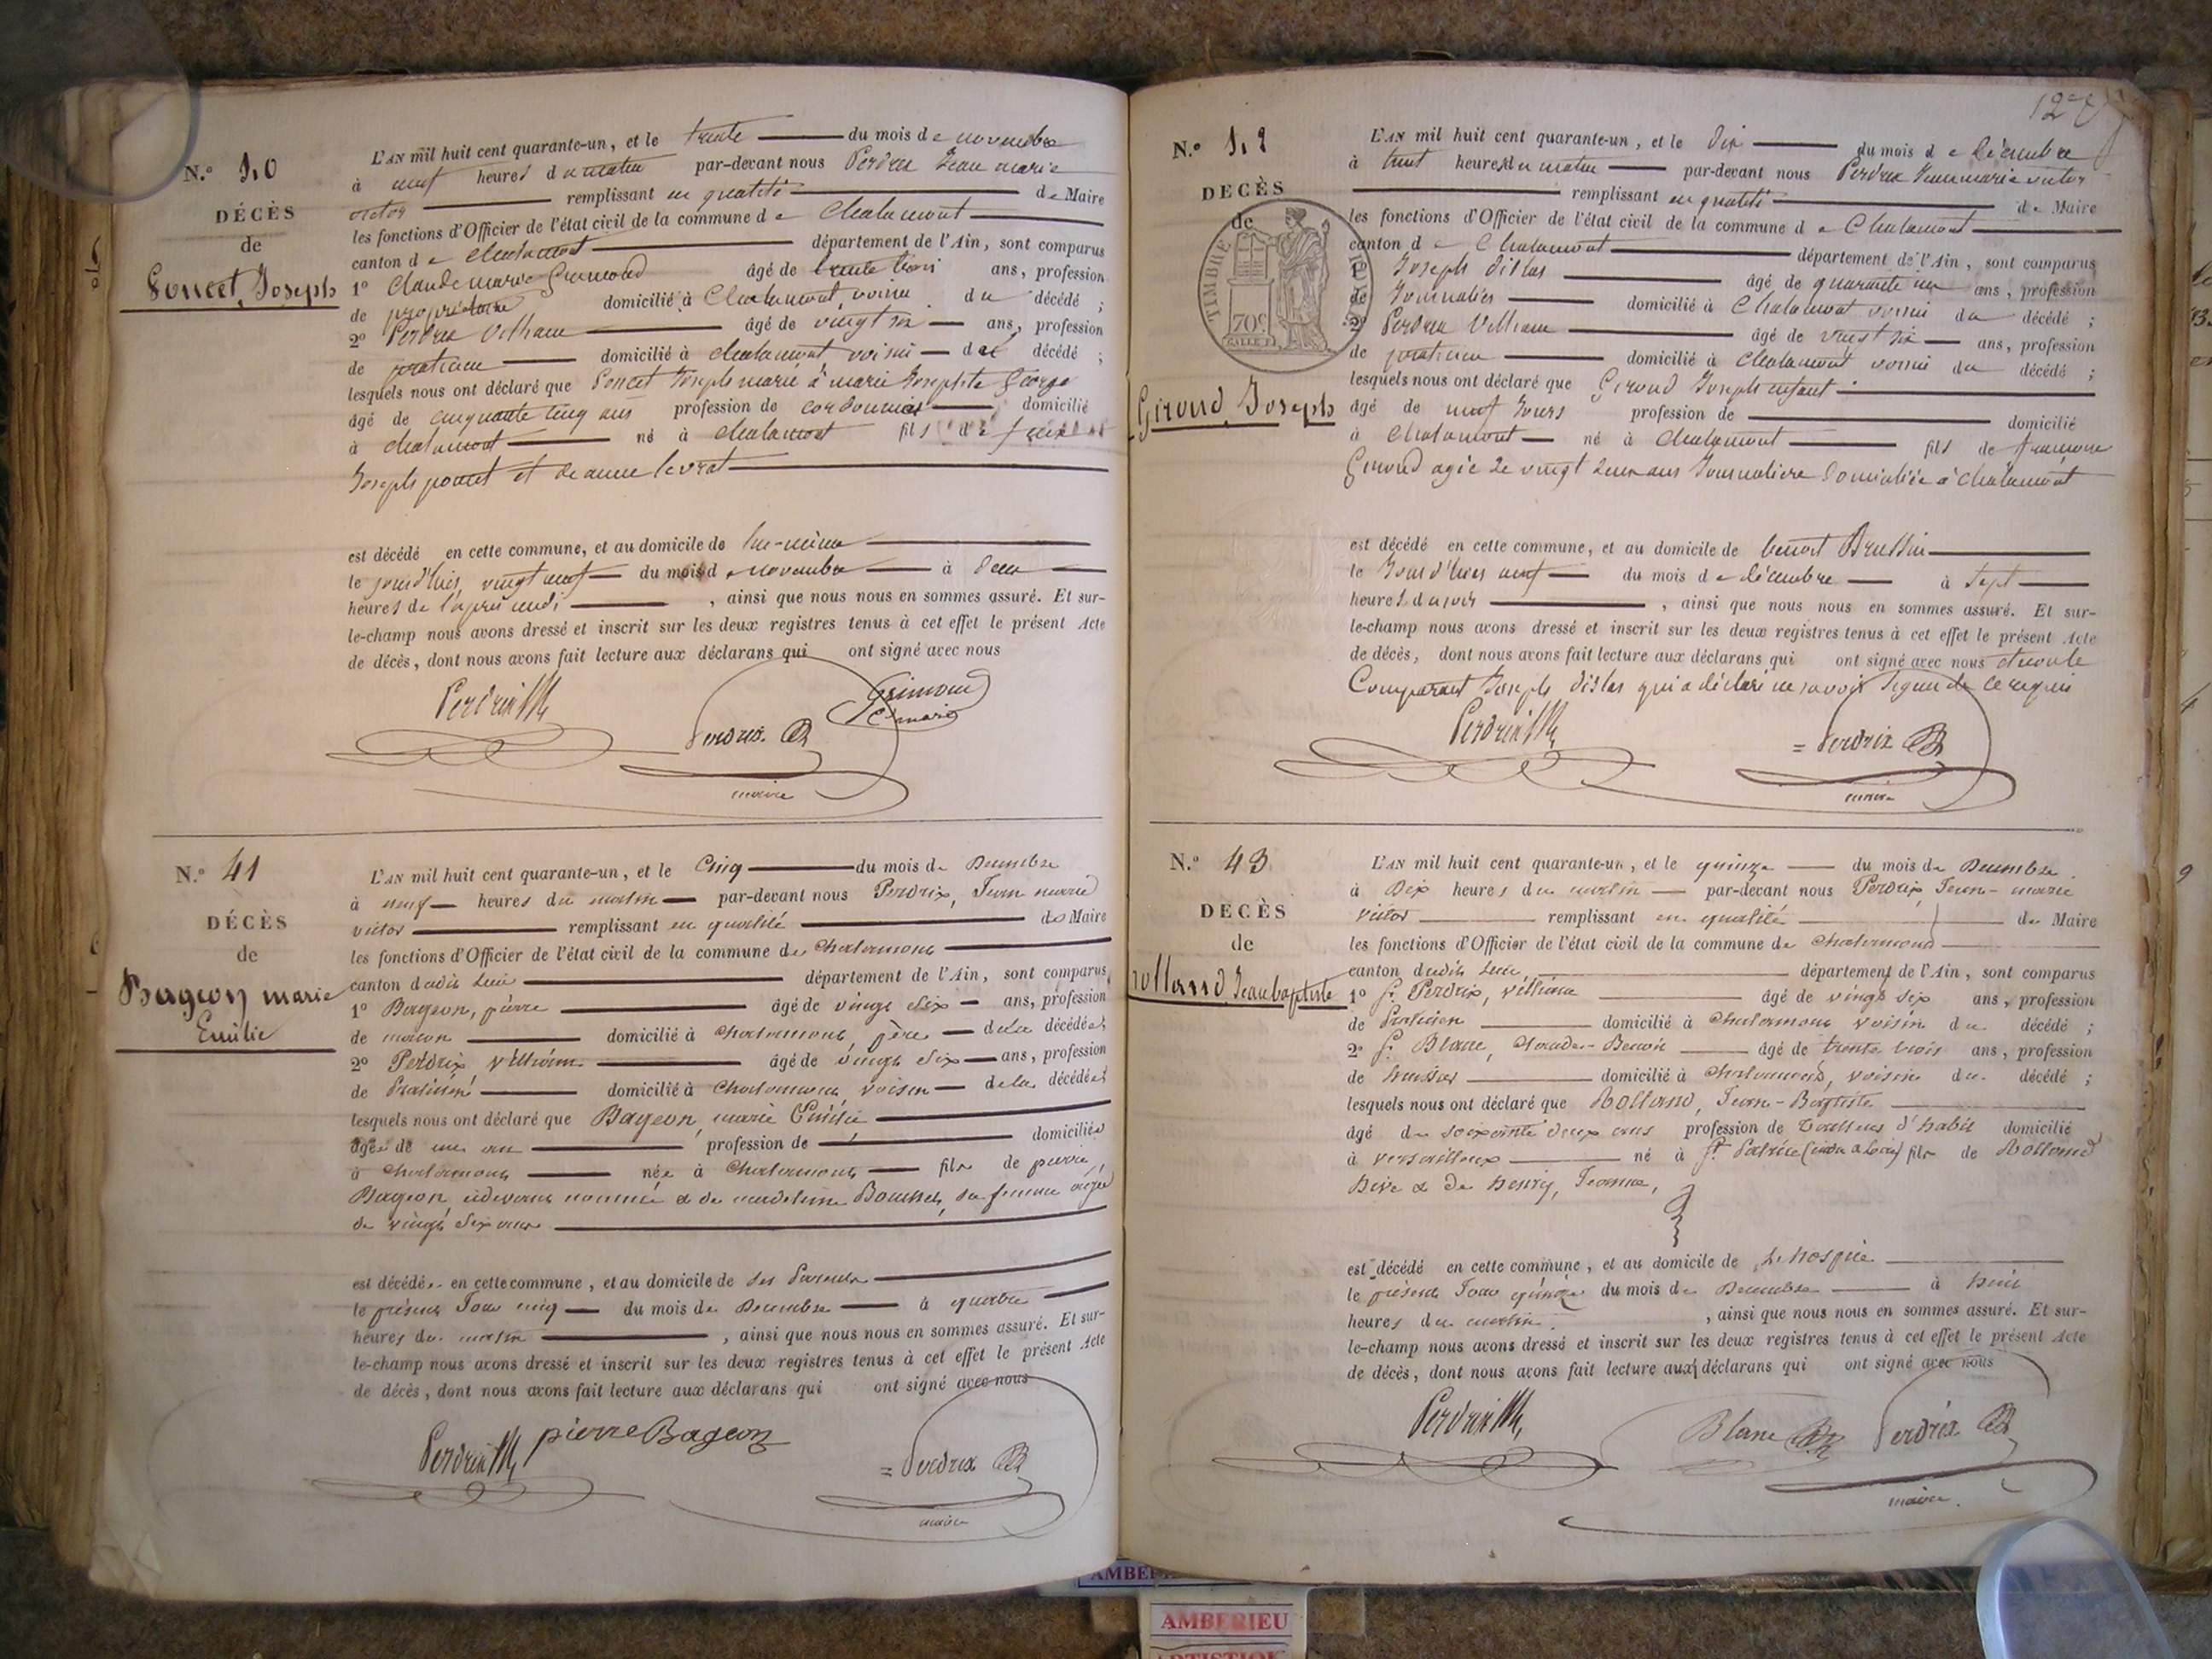 N.° 40
DÉCÈS
de
Poncet, Joseph
L'AN mil huit cent quarante-un, et le trente du mois de novembre
à neuf heures du matin par-devant nous Perdrix Jean marie
victor remplissant en qualité de Maire
les fonctions d'Officier de l'état civil de la commune de Chalamont
canton de chalamont département de l'Ain, sont comparus
1° Claude marie Grimoud âgé de trente trois ans, profession
de propriétaire domicilié à Chalamont, voisin du décédé ;
2° Perdrix Villiam âgé de vingt six ans, profession
de praticien domicilié à chalamont voisin du décédé ;
lesquels nous ont déclaré que Poncet Joseph marié à marie Josephte George
âgé de cinquante cinq ans profession de cordonnier domicilié
à chalamont né à chalamont fils de feux
Joseph poncet et de anne levrat
est décédé en cette commune, et au domicile de lui-même
le jourd'hier vingt neuf du mois de novembre à deux
heures de l'après midi, ainsi que nous nous en sommes assuré. Et sur-
le-champ nous avons dressé et inscrit sur les deux registres tenus à cet effet le présent Acte
de décès, dont nous avons fait lecture aux déclarans qui ont signé avec nous
Perdrix Grimoud
Perdrix C. marie
maire
N.° 41
DÉCÈS
de
Bageon marie
Emilie
L'AN mil huit cent quarante-un, et le Cinq du mois de Decembre
à neuf heures du matin par-devant nous Perdrix, Jean marie
victor remplissant en qualité de Maire
les fonctions d'Officier de l'état civil de la commune de Chalamont
canton dudit lieu département de l'Ain, sont comparus
1° Bageon, pierre âgé de vingt six ans, profession
de macon domicilié à Chalamont, père de la décédée ;
2° Perdrix Villiam âgé de vingt six ans, profession
de Praticien domicilié à Chalamont, voisin de la décédée ;
lesquels nous ont déclaré que Bageon, marie Emilie
âgée de un an profession de domiciliée
à Chalamont née à Chalamont fille de pierre
Bageon, cidevant nommé & de madelaine sa femme âgée
de vingt six ans
est décédée en cette commune, et au domicile de ses Parents
le présent Jour cinq du mois de Decembre à quatre
heures du matin, ainsi que nous nous en sommes assuré. Et sur-
le-champ nous avons dressé et inscrit sur les deux registres tenus à cet effet le présent Acte
de décès, dont nous avons fait lecture aux déclarans qui ont signé avec nous
Perdrix pierre Bageon
Perdrix
maire
N.° 42
DECÈS
de
TIMBRE ROYAL
70c
Giroud Joseph
L'AN mil huit cent quarante-un, et le dix du mois de décembre
à huit heures du matin par-devant nous Perdrix Jean marie victor
remplissant en qualité de Maire
les fonctions d'Officier de l'état civil de la commune de Chalamont
canton de Chalamont département de l'Ain, sont comparus
1° Joseph âgé de quarante un ans, profession
de Journalier domicilié à Chalamont voisin du décédé ;
2° Perdrix Villiam âgé de vingt six ans, profession
de praticien domicilié à chalamont voisin du décédé ;
lesquels nous ont déclaré que Giroud Joseph enfant
âgé de neuf Jours profession de domicilié
à Chalamont né à Chalamont fils de françoise
Giroud agée de vingt deux ans Journaliere domiciliée à Chalamont
est décédé en cette commune, et au domicile de benoit
le Jourd'hier neuf du mois de décembre à sept
heures du soir, ainsi que nous nous en sommes assuré. Et sur-
le-champ nous avons dressé et inscrit sur les deux registres tenus à cet effet le présent Acte
de décès, dont nous avons fait lecture aux déclarans qui ont signé avec nous
Comparant Joseph qui a déclaré ne savoir signer de ce requis
Perdrix
Perdrix
maire
N.° 43
DECÈS
de
Rolland Jean baptiste
L'AN mil huit cent quarante-un, et le quinze du mois de Decembre
à Dix heures du matin par-devant nous Perdrix, Jean-marie
victor remplissant en qualité de Maire
les fonctions d'Officier de l'état civil de la commune de Chalamont
canton dudit lieu, département de l'Ain, sont comparus
1° Sr Perdrix, Villiam âgé de vingt six ans, profession
de Praticien domicilié à Chalamont voisin du décédé ;
2° Sr Blanc, Claude-Benoit âgé de trente trois ans, profession
de huissier domicilié à Chalamont, voisin du décédé ;
lesquels nous ont déclaré que Rolland, Jean-Baptiste
âgé de soixante deux ans profession de Tailleur d'habit domicilié
à Versailleux né à fils de Rolland
& de Henry, Jeanne,
est décédé en cette commune, et au domicile de L'hospice
le présent Jour quinze du mois de Decembre à huit
heures du matin, ainsi que nous nous en sommes assuré. Et sur-
le-champ nous avons dressé et inscrit sur les deux registres tenus à cet effet le présent Acte
de décès, dont nous avons fait lecture aux déclarans qui ont signé avec nous
Perdrix Blanc Perdrix
maire
AMBERIEU